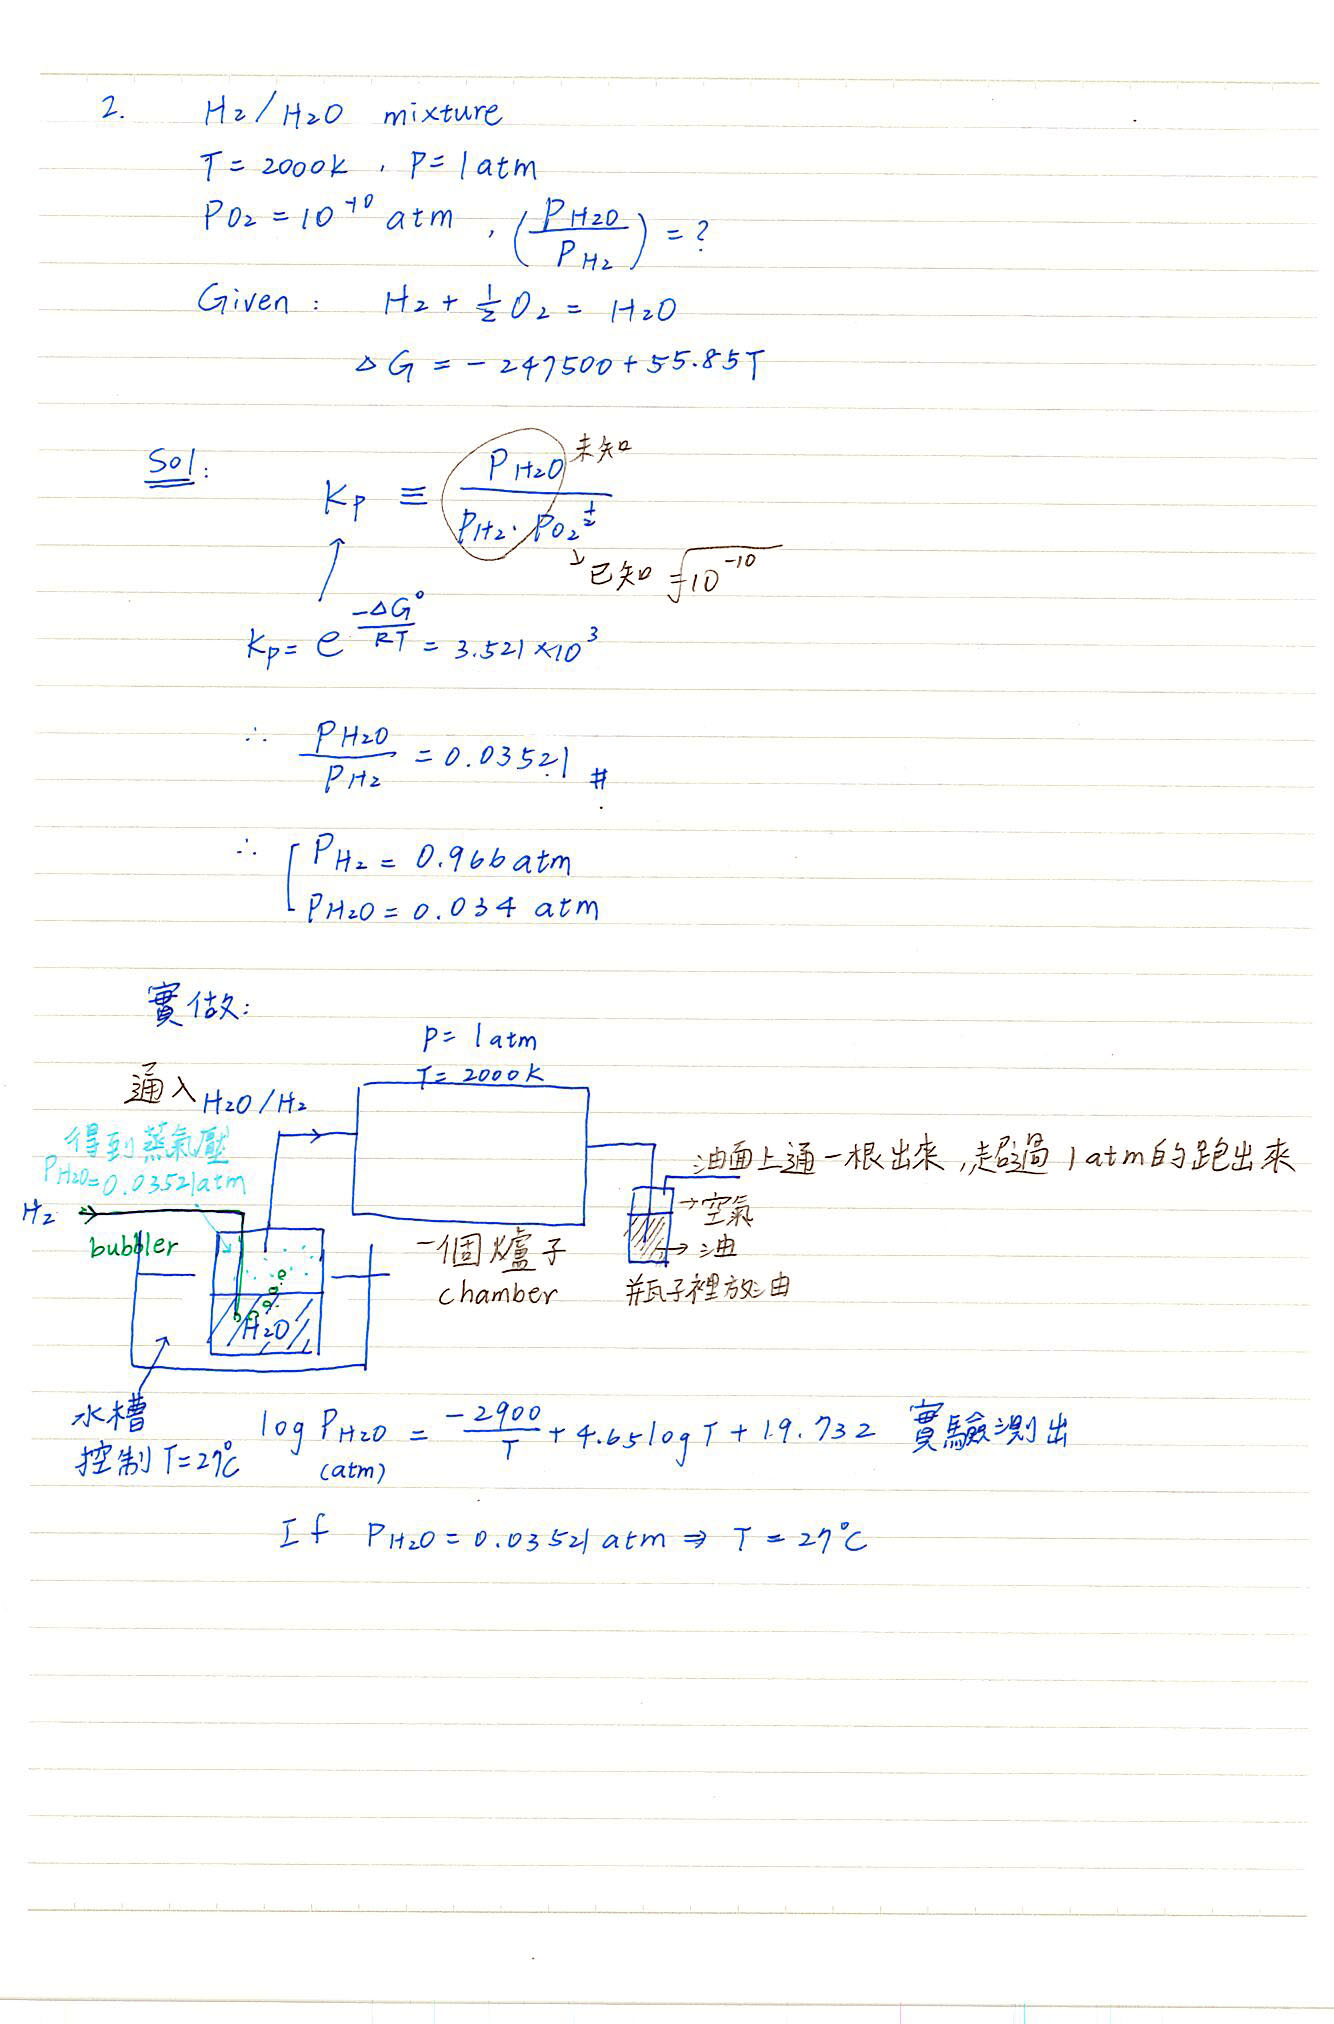 2. H₂/H₂O mixture
T = 2000K , P = 1 atm
PO₂ = 10⁻¹⁰ atm , (P H₂O / P H₂) = ?
Given : H₂ + ½ O₂ = H₂O
△G = -247500 + 55.85T
Sol : Kp ≡ P H₂O / (P H₂ · P O₂^½) 未知
↓已知 = √10⁻¹⁰
Kp = e^(-△G°/RT) = 3.521 × 10³
∴ P H₂O / P H₂ = 0.03521 #
∴ [ P H₂ = 0.966 atm
P H₂O = 0.034 atm
實做:
P = 1 atm
T = 2000K
通入 H₂O/H₂
得到蒸氣壓
P H₂O = 0.03521 atm
油面上通一根出來,超過 1 atm的跑出來
H₂
→ 空氣
bubbler
一個爐子
→ 油
chamber
瓶子裡放油
H₂O
水槽
控制 T = 27°C
log P H₂O = -2900/T + 4.65 log T + 19.732 實驗測出
(atm)
If P H₂O = 0.03521 atm ⇒ T = 27°C